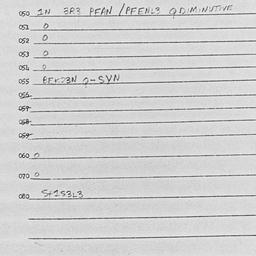 050 IN 3R3 PFAN /PFENL3 Q DIMINUTIVE
051 0
052 0
053 0
054 0
055
056
057
058
059
060 0
070 0
080 S+1S3L3